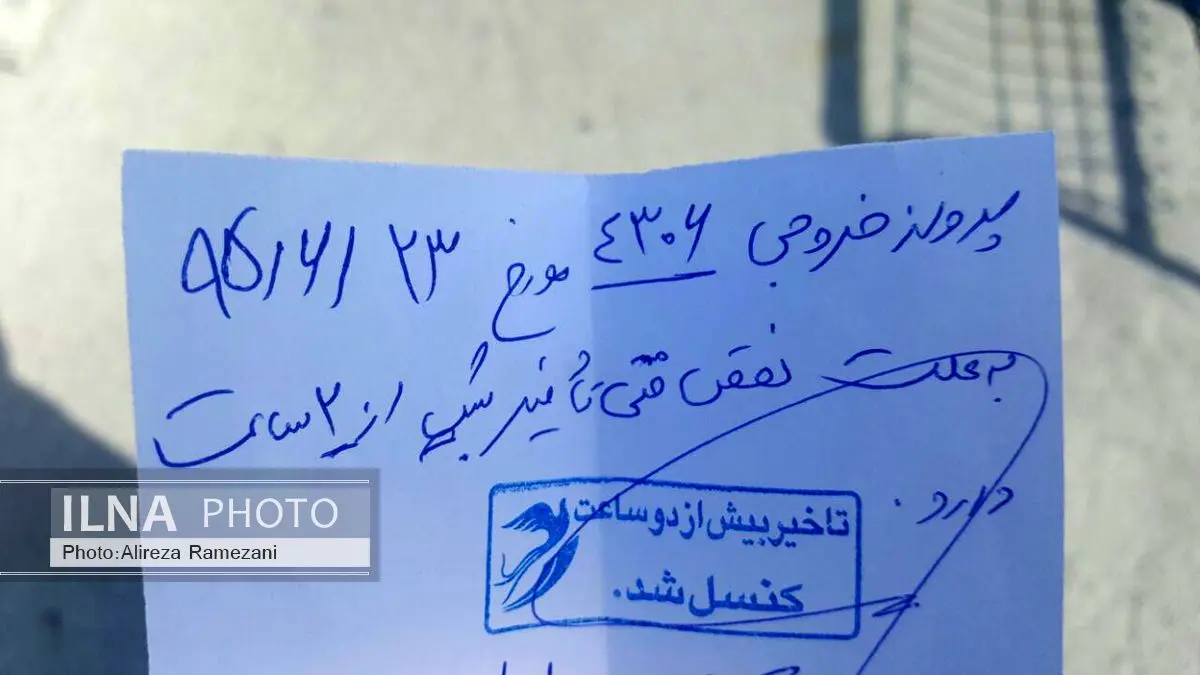 پرواز خروجی ۴۳۰۶ مورخ ۹۵/۶/۲۳
به علت نقص فنی تأخیر بیش از ۲ ساعت
دارد.
تاخیر بیش از دو ساعت
کنسل شد.
ILNA PHOTO
Photo:Alireza Ramezani